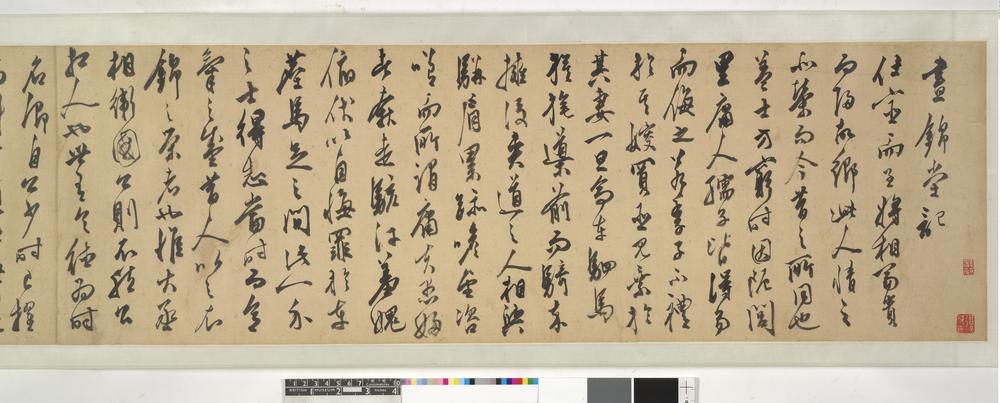 晝錦堂記
仕宦而至將相富貴
而歸故鄉此人情之
所榮而今昔之所同也
蓋士方窮時困阨閭
里庸人孺子皆得易
而侮之若季子不禮
於其嫂買臣見棄於
其妻一旦高車駟馬
旗旄導前而騎卒
擁後夾道之人相與
駢肩累跡瞻望咨
嗟而所謂庸夫愚婦
奔走駭汗羞愧
俯伏以自悔罪於車
塵馬足之間此一介
之士得志當時而意
氣之盛昔人比之衣
錦之榮者也惟大丞
相衛國公則不然公
相人也世有令德為時
名卿自公少時已擢
1 2 3 4 5 6 7 8 9 10
British Museum